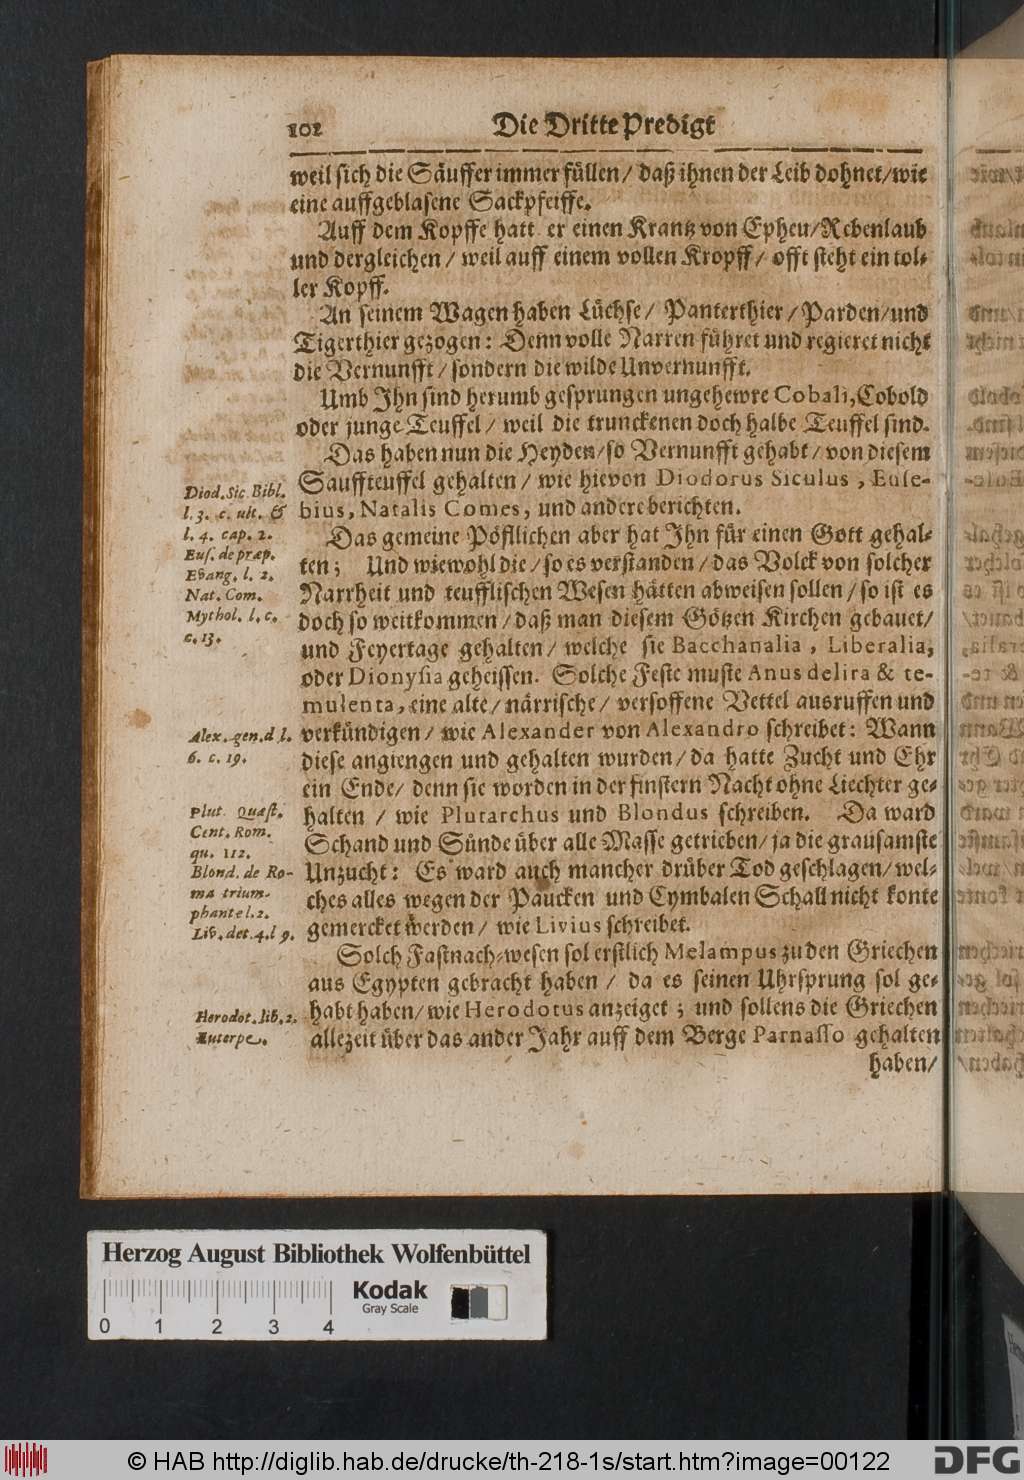 101 Die Dritte Predigt
weil sich die Säuffer immer füllen / daß ihnen der Leib dohnet/wie
eine auffgeblasene Sackpfeiffe.
Auff dem Kopffe hatt er einen Krantz von Epheu/Rebenlaub
und dergleichen / weil auff einem vollen Kropff / offt steht ein tol-
ler Kopff.
An seinem Wagen haben Lüchse / Panterthier / Parden/und
Tigerthier gezogen: Denn volle Narren führet und regieret nicht
die Vernunfft / sondern die wilde Unvernunfft.
Umb Ihn sind herumb gesprungen ungehewre Cobali, Cobold
oder junge Teuffel / weil die trunckenen doch halbe Teuffel sind.
Das haben nun die Heyden/so Vernunfft gehabt / von diesem
Sauffteuffel gehalten / wie hievon Diodorus Siculus, Euse-
bius, Natalis Comes, und andere berichten.
Das gemeine Pöfflichen aber hat Ihn für einen Gott gehal-
ten; Und wiewohl die / so es verstanden / das Volck von solcher
Narrheit und teufflischen Wesen hätten abweisen sollen / so ist es
doch so weit kommen / daß man diesem Götzen Kirchen gebauet/
und Feyertage gehalten / welche sie Bacchanalia, Liberalia,
oder Dionysia geheissen. Solche Feste muste Anus delira & te-
mulenta, eine alte / närrische / versoffene Vettel ausruffen und
verkündigen / wie Alexander von Alexandro schreibet: Wann
diese angiengen und gehalten wurden / da hatte Zucht und Ehr
ein Ende / denn sie worden in der finstern Nacht ohne Liechter ge-
halten / wie Plutarchus und Blondus schreiben. Da ward
Schand und Sünde über alle Masse getrieben / ja die grausamste
Unzucht: Es ward auch mancher drüber Tod geschlagen / wel-
ches alles wegen der Paucken und Cymbalen Schall nicht konte
gemercket werden / wie Livius schreibet.
Solch Fastnach-wesen sol erstlich Melampus zu den Griechen
aus Egypten gebracht haben / da es seinen Uhrsprung sol ge-
habt haben / wie Herodotus anzeiget ; und sollens die Griechen
allezeit über das ander Jahr auff dem Berge Parnasso gehalten
haben/
Diod. Sic. Bibl.
l. 3. c. ult. &
l. 4. cap. 2.
Eus. de præp.
Evang. l. 2.
Nat. Com.
Mythol. l. c.
c. 13.
Alex. gen. d. l.
6. c. 19.
Plut. Quæst.
Cent. Rom.
qu. 112.
Blond. de Ro-
ma trium-
phante l. 2.
Liv. det. 4. l 9.
Herodot. lib. 2.
Euterpe.
Herzog August Bibliothek Wolfenbüttel
Kodak
Gray Scale
0 1 2 3 4
© HAB http://diglib.hab.de/drucke/th-218-1s/start.htm?image=00122
DFG